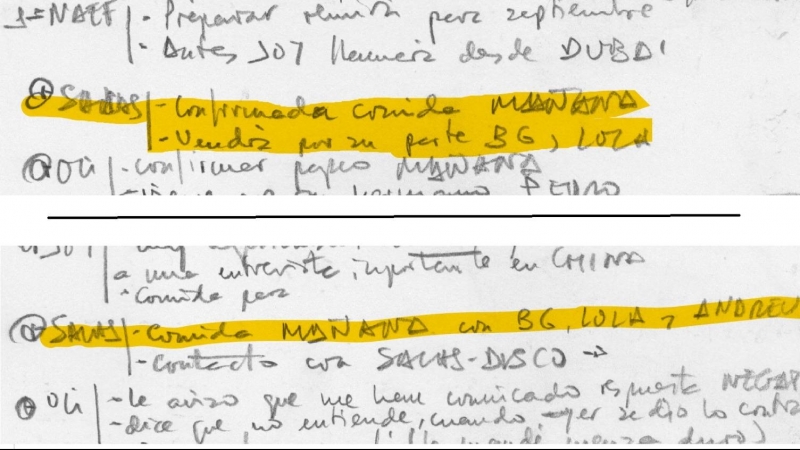 1=NAEF | - Preparar reunión para septiembre
- Antes SOY llamará desde DUBAI
+ SALAS | - Confirmada comida MAÑANA
- Vendrá por su parte BG, LOLA
OLi | - confirmar papeo MAÑANA
PEDRO
a una entrevista importante en CHINA
- Comida para
+ SALAS | - Comida MAÑANA con BG, LOLA y ANDREU
- Contacto con SALAS-DISCO →
+ OLi | - le aviso que me han comunicado respuesta NEGAT
- dice que no entiende, cuando ayer se dio lo contra